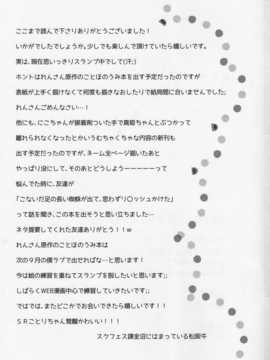 ここまで読んで下さりありがとうございました！
いかがでしたでしょうか。少しでも楽しんで頂けていたら嬉しいです。
実は、現在思いっきりスランプ中でして(汗;)
ホントはれんさん原作のことほのうみ本を出す予定だったのですが
表紙が上手く描けなくて何度も描きなおしたりで結局間に合いませんでした;
れんさんごめんなさい…！
他にも、にこちゃんが接着剤ついた手で真姫ちゃんとぶつかって
離れられなくなったとかいうむちゃくちゃな内容の新刊も
出す予定だったのですが、ネーム全ページ描いたあと
やっぱり没にして、そのあとどうしようーーーーーって
悩んでた時に、友達が
「こないだ足の長い蜘蛛が出て、思わずリ〇ッシュかけた」
って話を聞き、この本を出そうと思い立ちました…
ネタ提供してくれた友達ありがとう！！ｗ
れんさん原作のことほのうみ本は
次の９月の僕ラブで出せればな…と思います！
今は絵の練習を重ねてスランプを脱したいと思います;;
しばらくWEB漫画中心で練習していきたいです;;
ではでは、またどこかでお会いできたら嬉しいです！！
ＳＲことりちゃん覚醒かわいい！！！
スクフェス課金沼にはまっている松阪牛